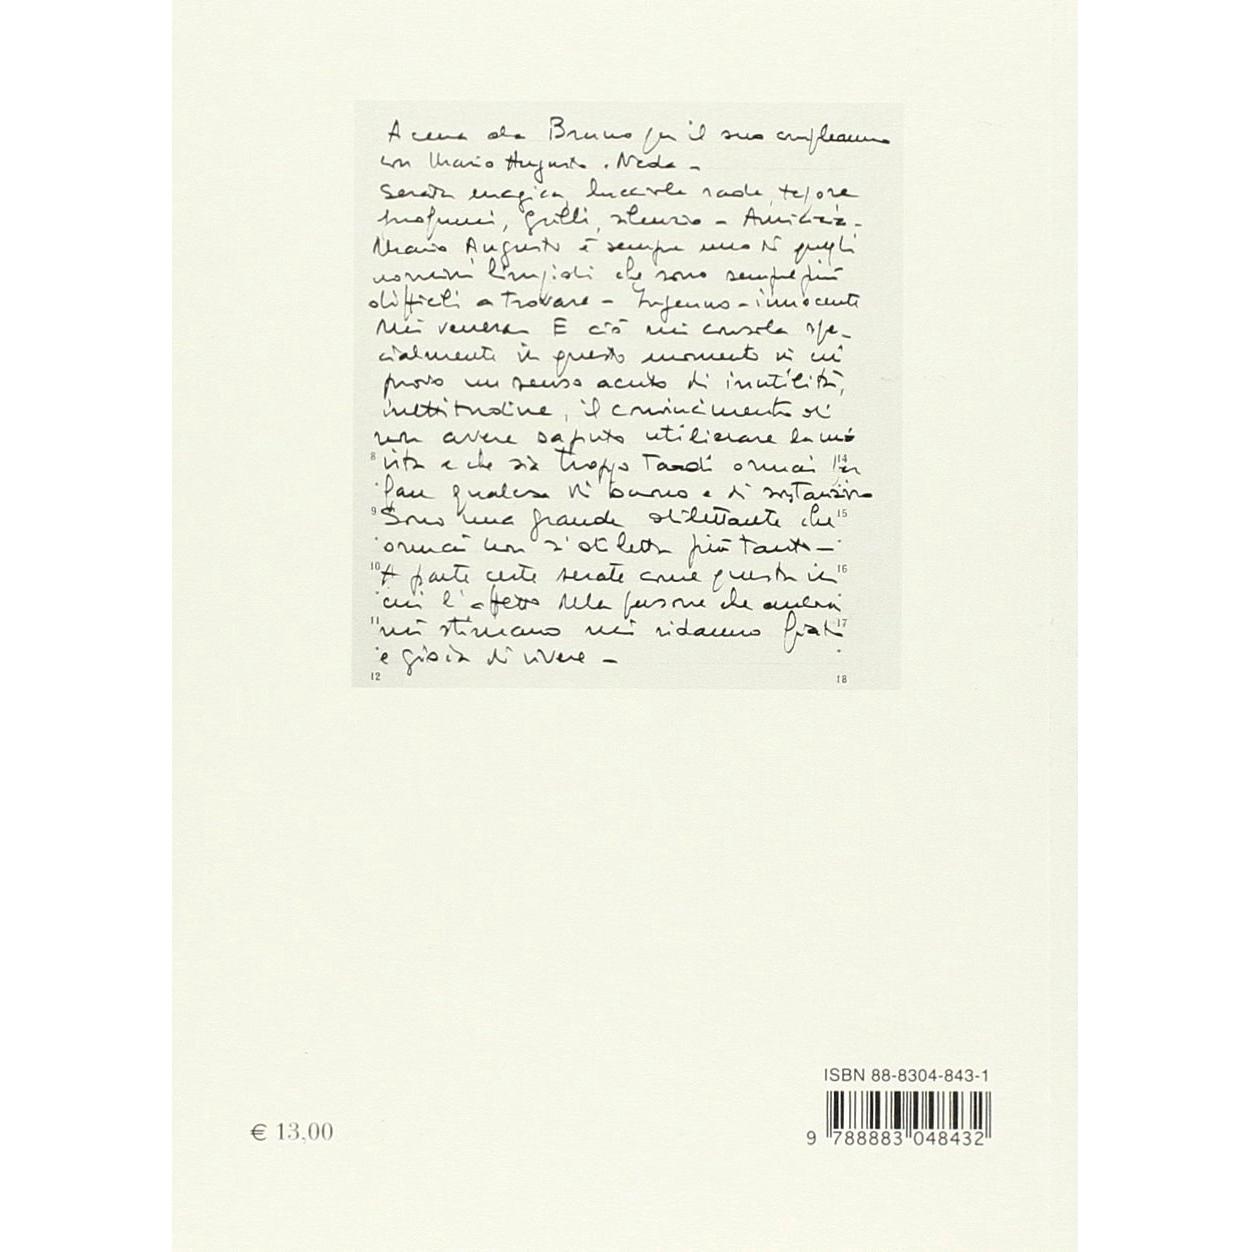 A cena da Bruno per il suo compleanno
con Mario Augusto. Neda -
Serata magica, lucciole rade, tepore
profumi, grilli, silenzio - Amicizia -
Mario Augusto è sempre uno di quegli
uomini limpidi che sono sempre più
difficili a trovare - Ingenuo - innocente
Mi venera. E ciò mi consola spe-
cialmente in questo momento in cui
provo un senso acuto di inutilità,
inettitudine, il convincimento di
non avere saputo utilizzare la mia
8 vita e che sia troppo tardi ormai per 14
fare qualcosa di buono e di sostanzioso
9 Sono una grande dilettante che 15
ormai non si diletta più tanto -
10 A parte certe serate come questa in 16
cui l'affetto delle persone che ancora
11 mi stimano mi ridanno fiato 17
e gioia di vivere -
12 18
ISBN 88-8304-843-1
€ 13,00
9 788883 048432